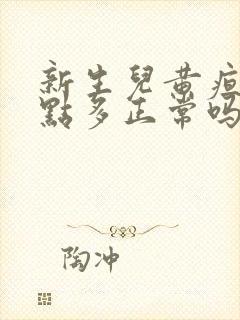 新生兒黃疸
點多正常吗
陶冲